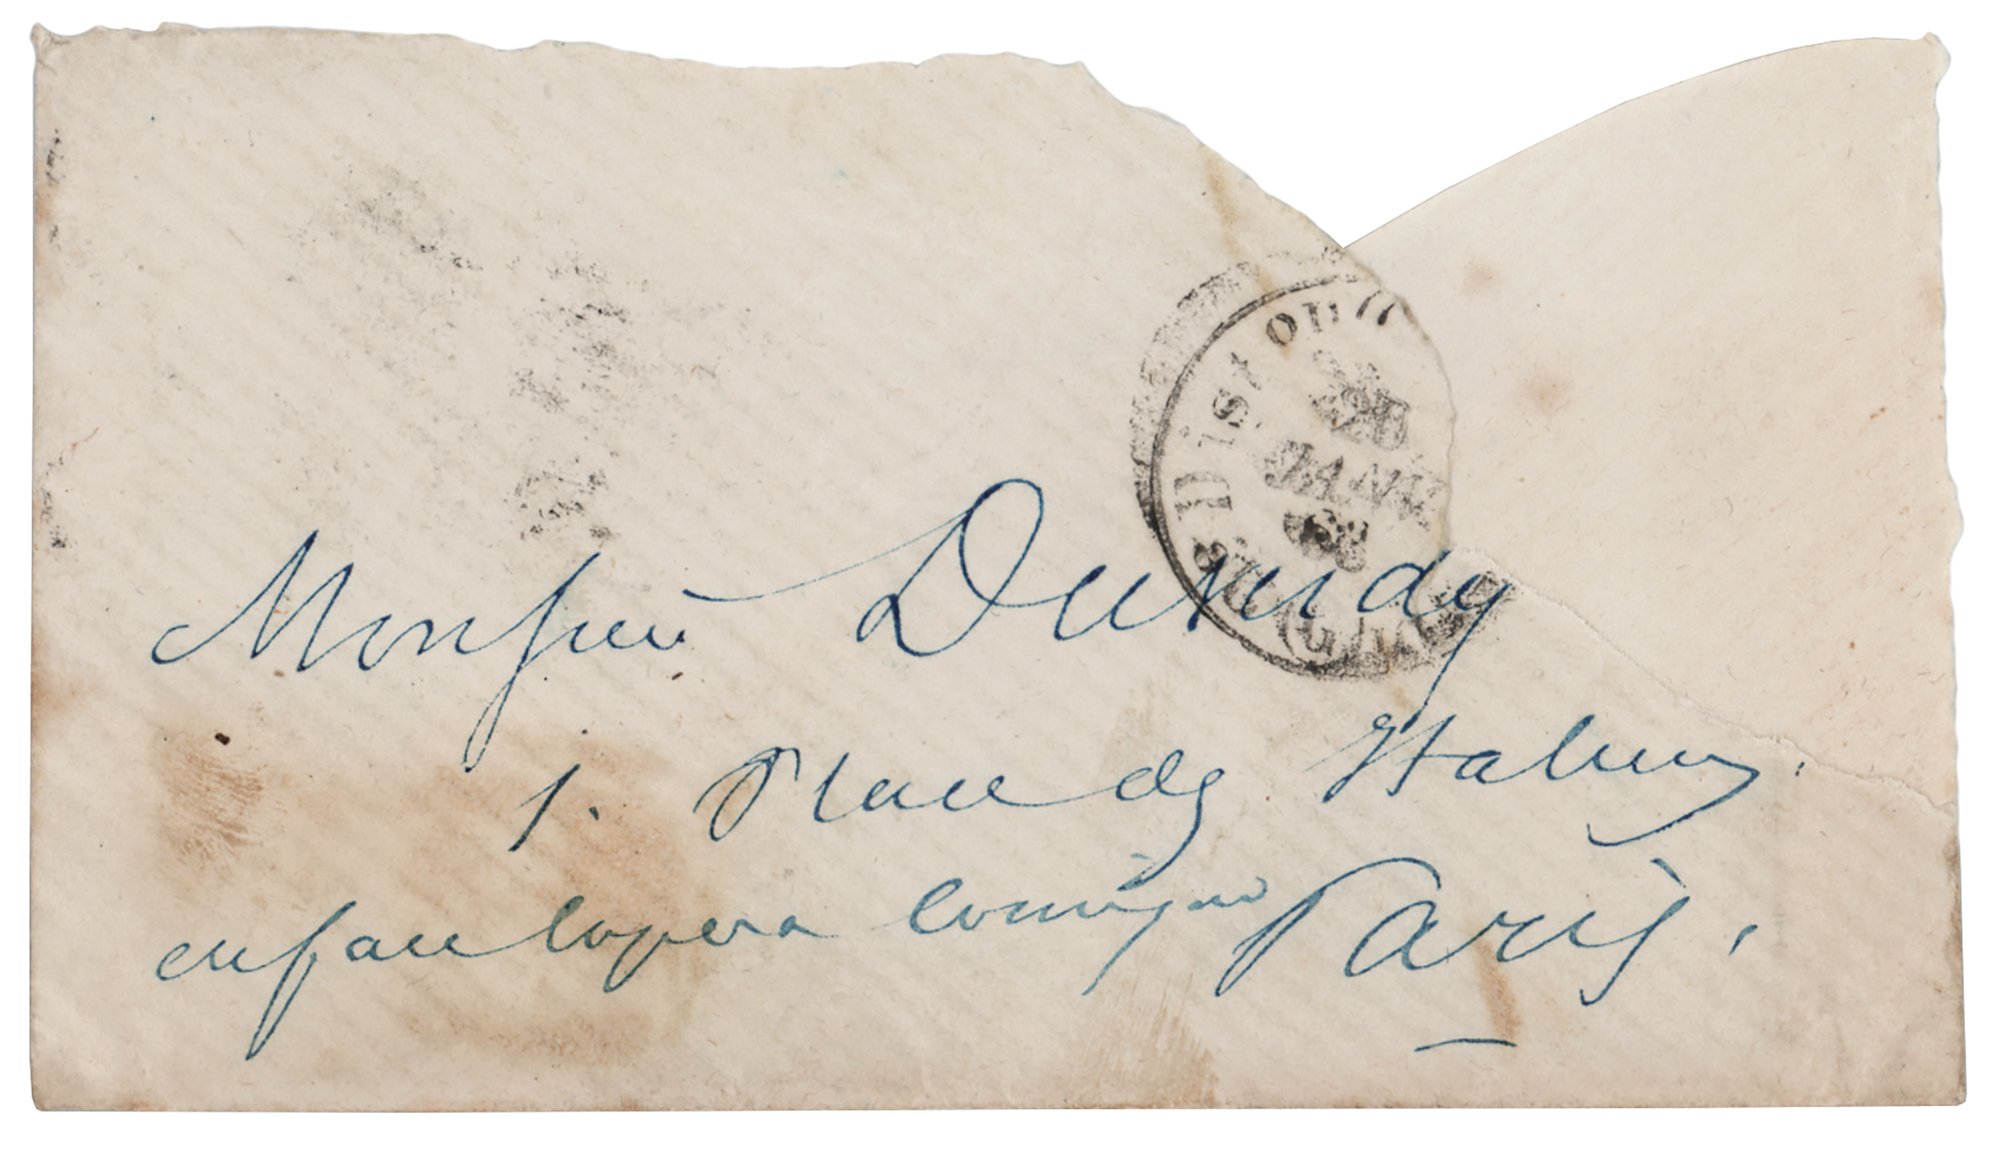 Dist on
JANV
68
Monsieur
1. Place des Italiens.
en face l'opera Comique Paris.